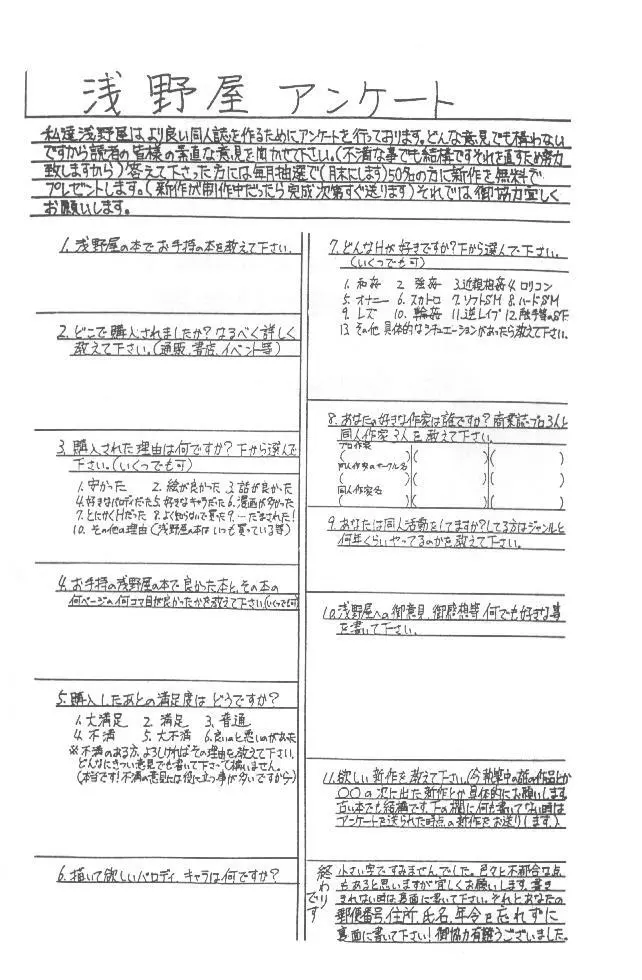 浅野屋 アンケート
私達浅野屋はより良い同人誌を作るためにアンケートを行っております。どんな意見でも構わない
ですから読者の皆様の素直な意見を聞かせて下さい。(不満な事でも結構ですそれを直すため努力
致しますから)答えて下さった方には毎月抽選で(月末にします)50名の方に新作を無料で
プレゼントします。(新作が制作中だったら完成次第すぐ送ります)それでは御協力宜しく
お願いします。
1. 浅野屋の本でお手持の本を教えて下さい.
2. どこで購入されましたか?なるべく詳しく
教えて下さい。(通販、書店、イベント等)
3. 購入された理由は何ですか?下から選んで
下さい。(いくつでも可)
1. 安かった 2. 絵が良かった 3. 話が良かった
4. 好きなパロディだった 5. 好きなキャラだった 6. 漫画が多かった
7. とにかくHだった 8. よく知らないで買った 9. …だまされた!
10. その他の理由(浅野屋の本はいつも買っている等)
4. お手持の浅野屋の本で良かった本と、その本の
何ページの何コマ目が良かったかを教えて下さい(いくつでも可)
5. 購入したあとの満足度はどうですか?
1. 大満足 2. 満足 3. 普通
4. 不満 5. 大不満 6. 良いのと悪いのがあった
※不満のある方、よろしければその理由を教えて下さい、
どんなにきつい意見でも書いて下さって構いません。
(本当です!不満の意見には役に立つ事が多いですから)
6. 描いて欲しいパロディ、キャラは何ですか?
7. どんなHが好きですか?下から選んで下さい。
(いくつでも可)
1. 和姦 2. 強姦 3. 近親相姦 4. ロリコン
5. オナニー 6. スカトロ 7. ソフトSM 8. ハードSM
9. レズ 10. 輪姦 11. 逆レイプ 12. 触手等のSF
13. その他 具体的なシチュエーションがあったら教えて下さい.
8. あなたの好きな作家は誰ですか?商業誌・プロ3人と
同人作家3人を教えて下さい。
プロ作家
( )( )( )
同人作家のサークル名
( )( )( )
同人作家名
( )( )( )
9. あなたは同人活動をしてますか?してる方はジャンルと
何年くらいやってるのかを教えて下さい。
10. 浅野屋への御意見、御感想等 何でも好きな事
を書いて下さい。
11. 欲しい新作を教えて下さい、(今執筆中の話の作品とか
〇〇の次に出た新作とか具体的にお願いします
古い本でも結構です、下の欄に何も書いてない時は
アンケートを送られた時点の新作をお送りします。)
終わりです
小さい字ですみませんでした。色々と不都合な点
もあると思いますが宜しくお願いします。書き
きれない時は裏面に書いて下さい。それとあなたの
郵便番号、住所、氏名、年令を忘れずに
裏面に書いて下さい!御協力有難うございました。